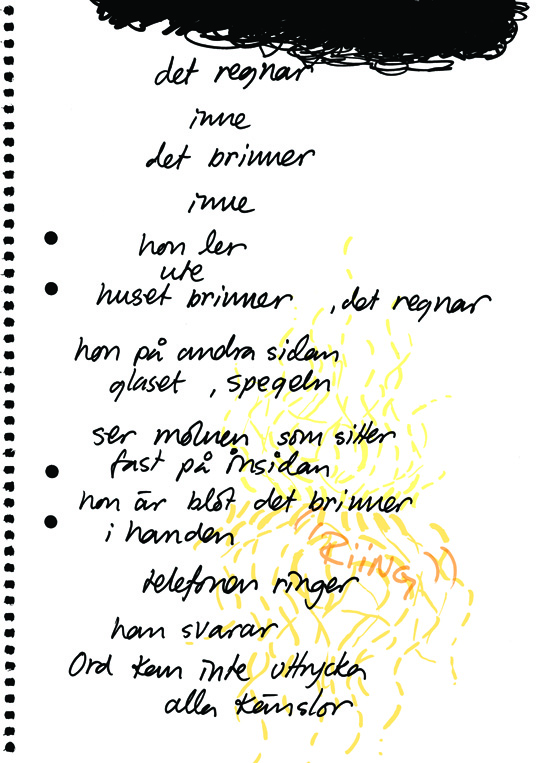 det regnar
inne
det brinner
inne
hon ler
ute
huset brinner , det regnar
hon på andra sidan
glaset , spegeln
ser molnen som sitter
fast på insidan
hon är blöt det brinner
i handen
"RiiNG))
telefonen ringer
hon svarar
Ord kan inte uttrycka
alla känslor